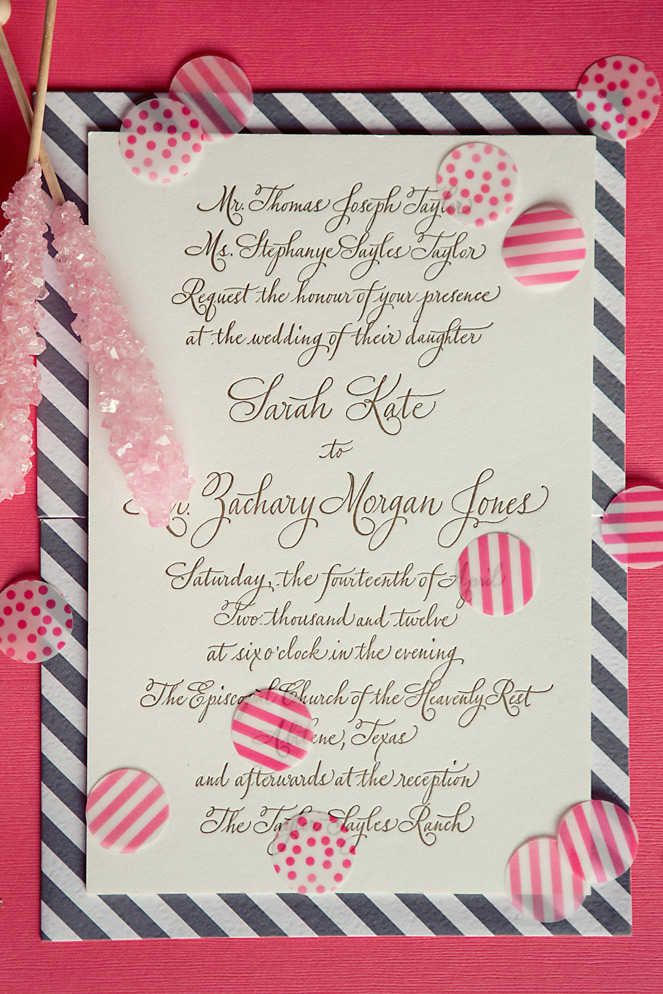 Mr. Thomas Joseph Taylor
Ms. Stephanye Sayles Taylor
Request the honour of your presence
at the wedding of their daughter
Sarah Kate
to
Mr. Zachary Morgan Jones
Saturday, the fourteenth of April
Two thousand and twelve
at six o'clock in the evening
The Episcopal Church of the Heavenly Rest
Abilene, Texas
and afterwards at the reception
The Taylor Sayles Ranch